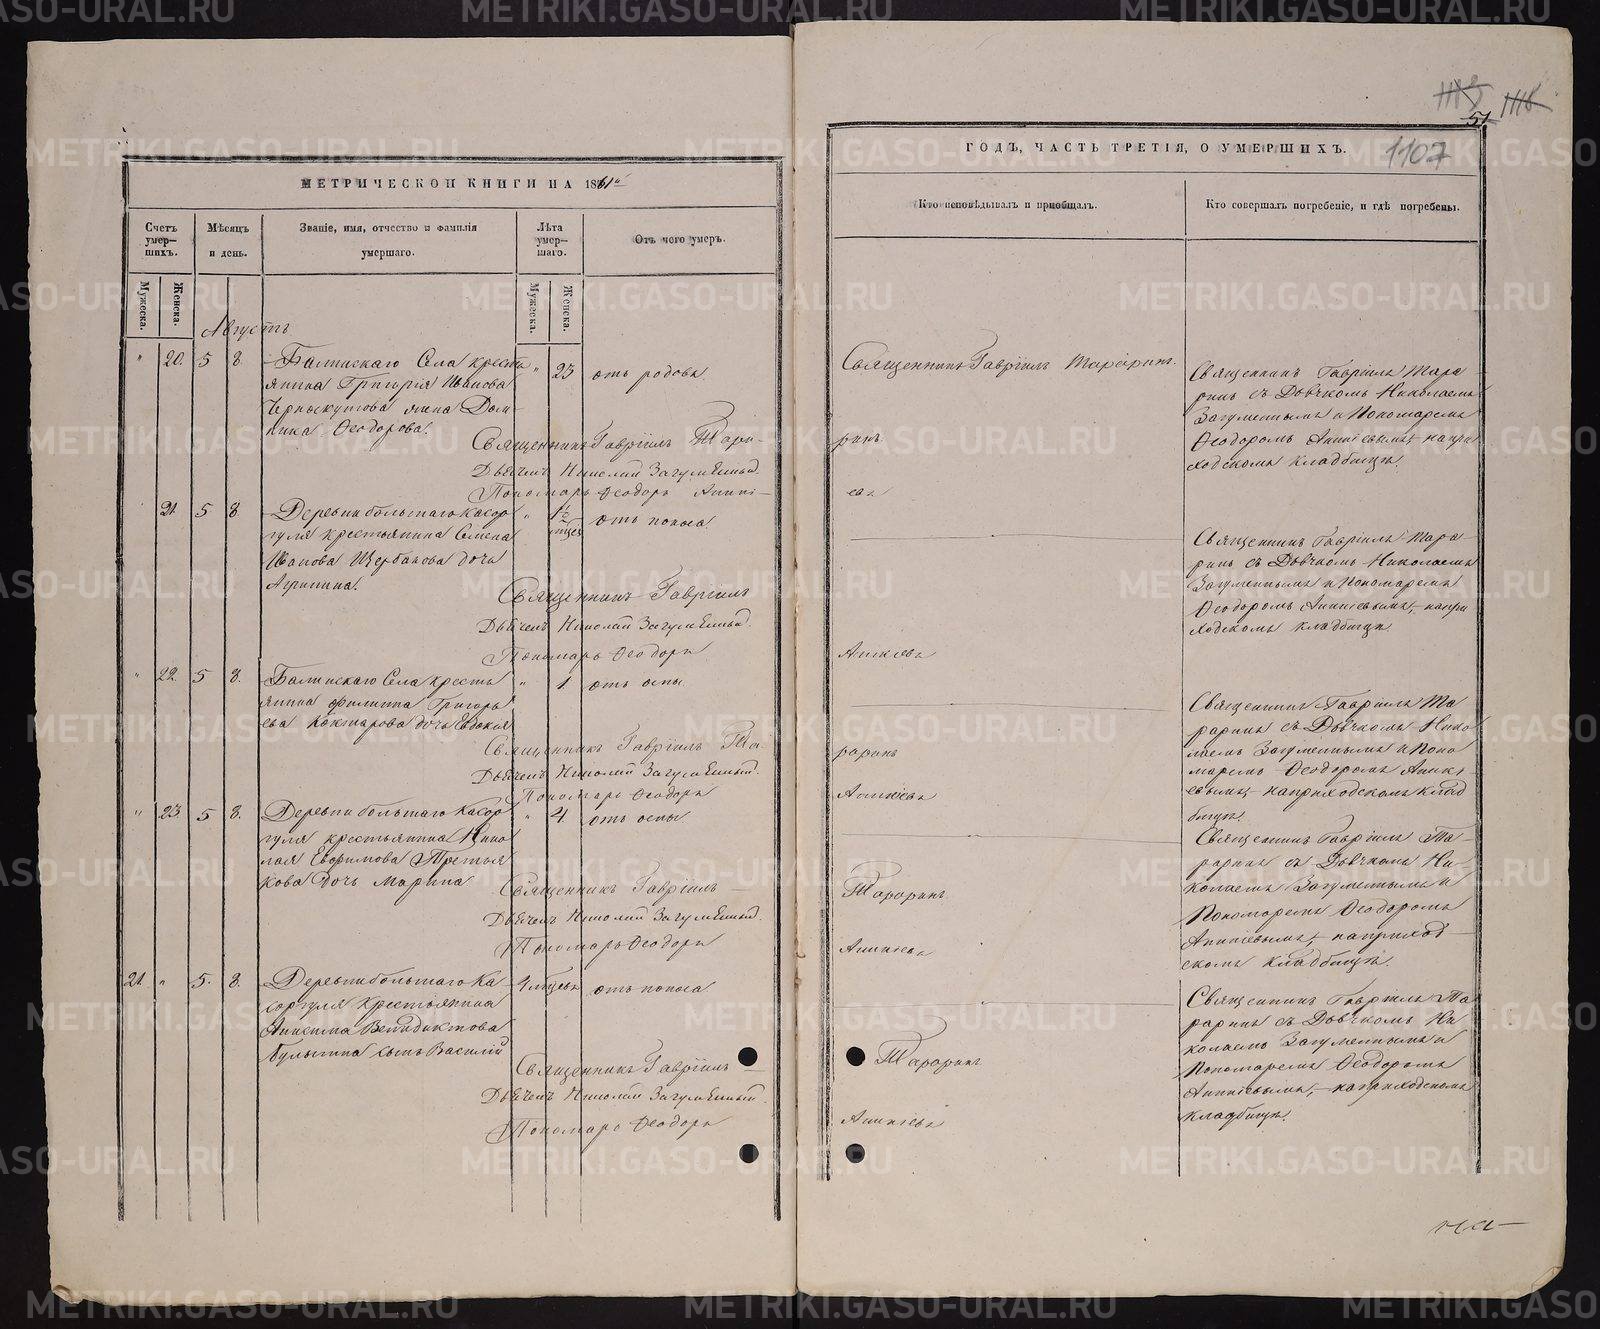 МЕТРИЧЕСКОЙ КНИГИ НА 1861й
Счетъ умер-шихъ.
Мѣсяцъ и день.
Званіе, имя, отчество и фамилія умершаго.
Лѣта умер-шаго.
Отъ чего умеръ.
Мужеска.
Женска.
Мужеска.
Женска.
Августъ
" 20. 5 8.
Балтискаго Села кресть
янина Григорія Иванова
Черноскутова жена Дом-
ника Ѳеодорова.
" 23 отъ родовъ.
Священникъ Гавріилъ Тара-
Дьячекъ Николай Загуменный.
Пономарь Ѳеодоръ Аники-
21. 5 8
Деревни большаго Касор
гуля крестьянина Семена
Иванова Щербакова дочь
Агрипина.
" 1½ отъ поноса
Священникъ Гавріилъ
Дьячекъ Николай Загуменный.
Пономарь Ѳеодоръ
" 22. 5 8.
Балтискаго Села кресть
янина Филиппа Григорь
ева Кокшарова дочь Евдокія
" 1. отъ оспы.
Священникъ Гавріилъ Та-
Дьячекъ Николай Загуменный.
Пономарь Ѳеодоръ
" 23. 5 8.
Деревни большаго Касор
гуля крестьянина Нико
лая Евфимова Третья
кова дочь Марина
" 4. отъ оспы.
Священникъ Гавріилъ —
Дьячекъ Николай Загуменный.
Пономарь Ѳеодоръ
21. " 5. 8.
Деревни большаго Ка
соргуля Крестьянина
Анисима Венидиктова
Булыгина сынъ Василій
4 отъ поноса
Священникъ Гавріилъ —
Дьячекъ Николай Загуменный.
Пономарь Ѳеодоръ
51
1107
ГОДЪ, ЧАСТЬ ТРЕТІЯ, О УМЕРШИХЪ.
Кто исповѣдывалъ и пріобщалъ.
Кто совершалъ погребеніе, и гдѣ погребены.
Священникъ Гавріилъ Тараринъ.
Священникъ Гавріилъ Тара
ринъ съ Дьячкомъ Николаемъ
Загуменнымъ и Пономаремъ
Ѳеодоромъ Аникіевымъ, на при
ходскомъ кладбищѣ.
ринъ.
евъ
Священникъ Гавріилъ Тара-
ринъ съ Дьячкомъ Николаемъ
Загуменнымъ и Пономаремъ
Ѳеодоромъ Аникіевымъ, на при
ходскомъ кладбищѣ.
Аникіевъ
Священникъ Гавріилъ Та
раринъ съ Дьячкомъ Нико
лаемъ Загуменнымъ и Поно
маремъ Ѳеодоромъ Аникі
евымъ, на приходскомъ клад
бищѣ.
раринъ
Аникіевъ
Священникъ Гавріилъ Та-
раринъ съ Дьячкомъ Ни-
колаемъ Загуменнымъ и
Пономаремъ Ѳеодоромъ
Аникіевымъ, на приход
скомъ кладбищѣ.
Тараринъ.
Аникіевъ
Священникъ Гавріилъ Та
раринъ съ Дьячкомъ Ни
колаемъ Загуменнымъ и
Пономаремъ Ѳеодоромъ
Аникіевымъ, на приходскомъ
кладбищѣ.
Тараринъ
Аникіевъ
METRIKI.GASO-URAL.RU